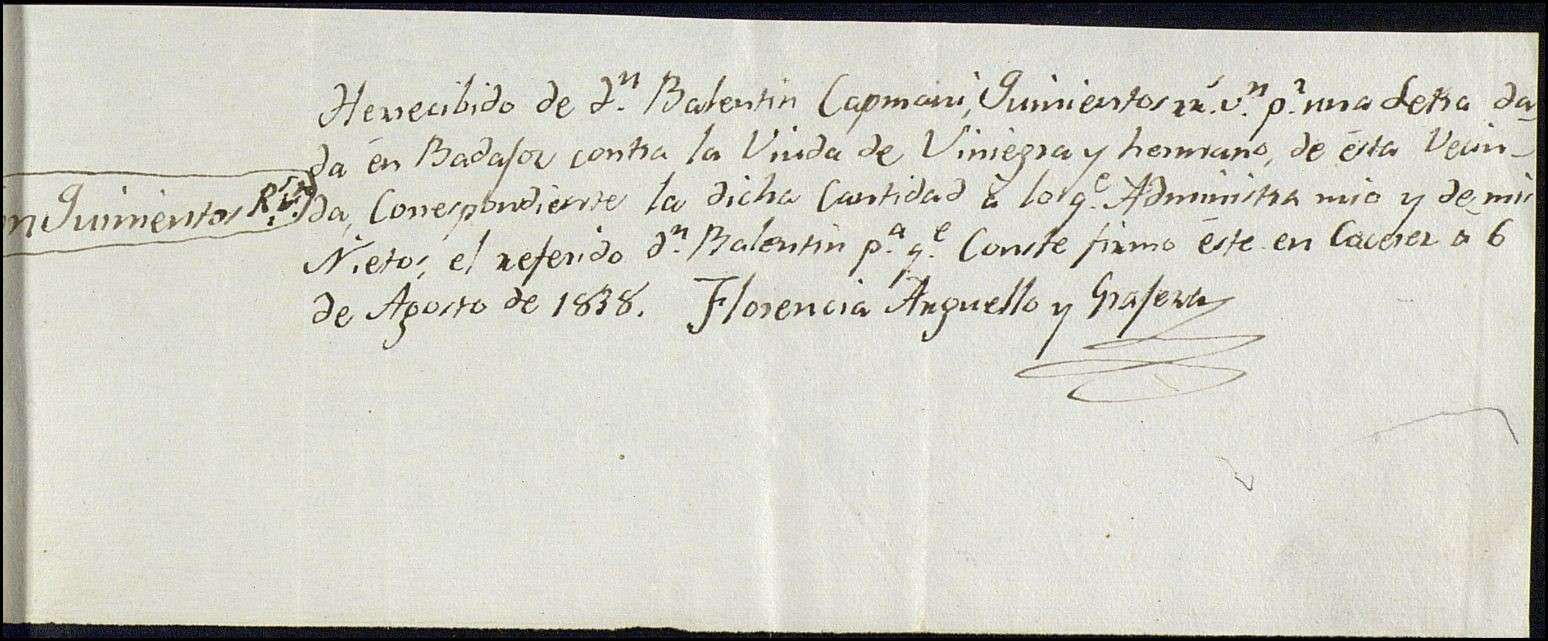 Herrecibido de d.n Balentin Capmani, Quinientos rs. v.n p.r una Letra da-
da én Badajoz contra la Viuda de Viniegra y hermano, de ésta Vecin-
da, Correspondiente la dicha Cantidad à lo q.e Administra mio y de mis
Nietos, el referido d.n Balentin p.a q.e Conste firmo éste en Caceres a 6
de Agosto de 1838. Florencia Arguello y Grajera
Quinientos Rs. v.n